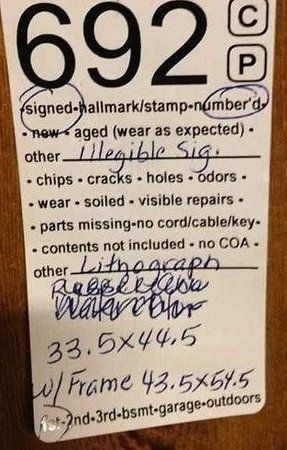 692 C
P
•signed•hallmark/stamp•number'd•
• new • aged (wear as expected) •
other Illegible Sig.
• chips • cracks • holes • odors •
• wear • soiled • visible repairs •
• parts missing-no cord/cable/key•
• contents not included • no COA •
other Lithograph
Watercolor
33.5x44.5
w/ Frame 43.5x54.5
1st•2nd•3rd•bsmt•garage•outdoors